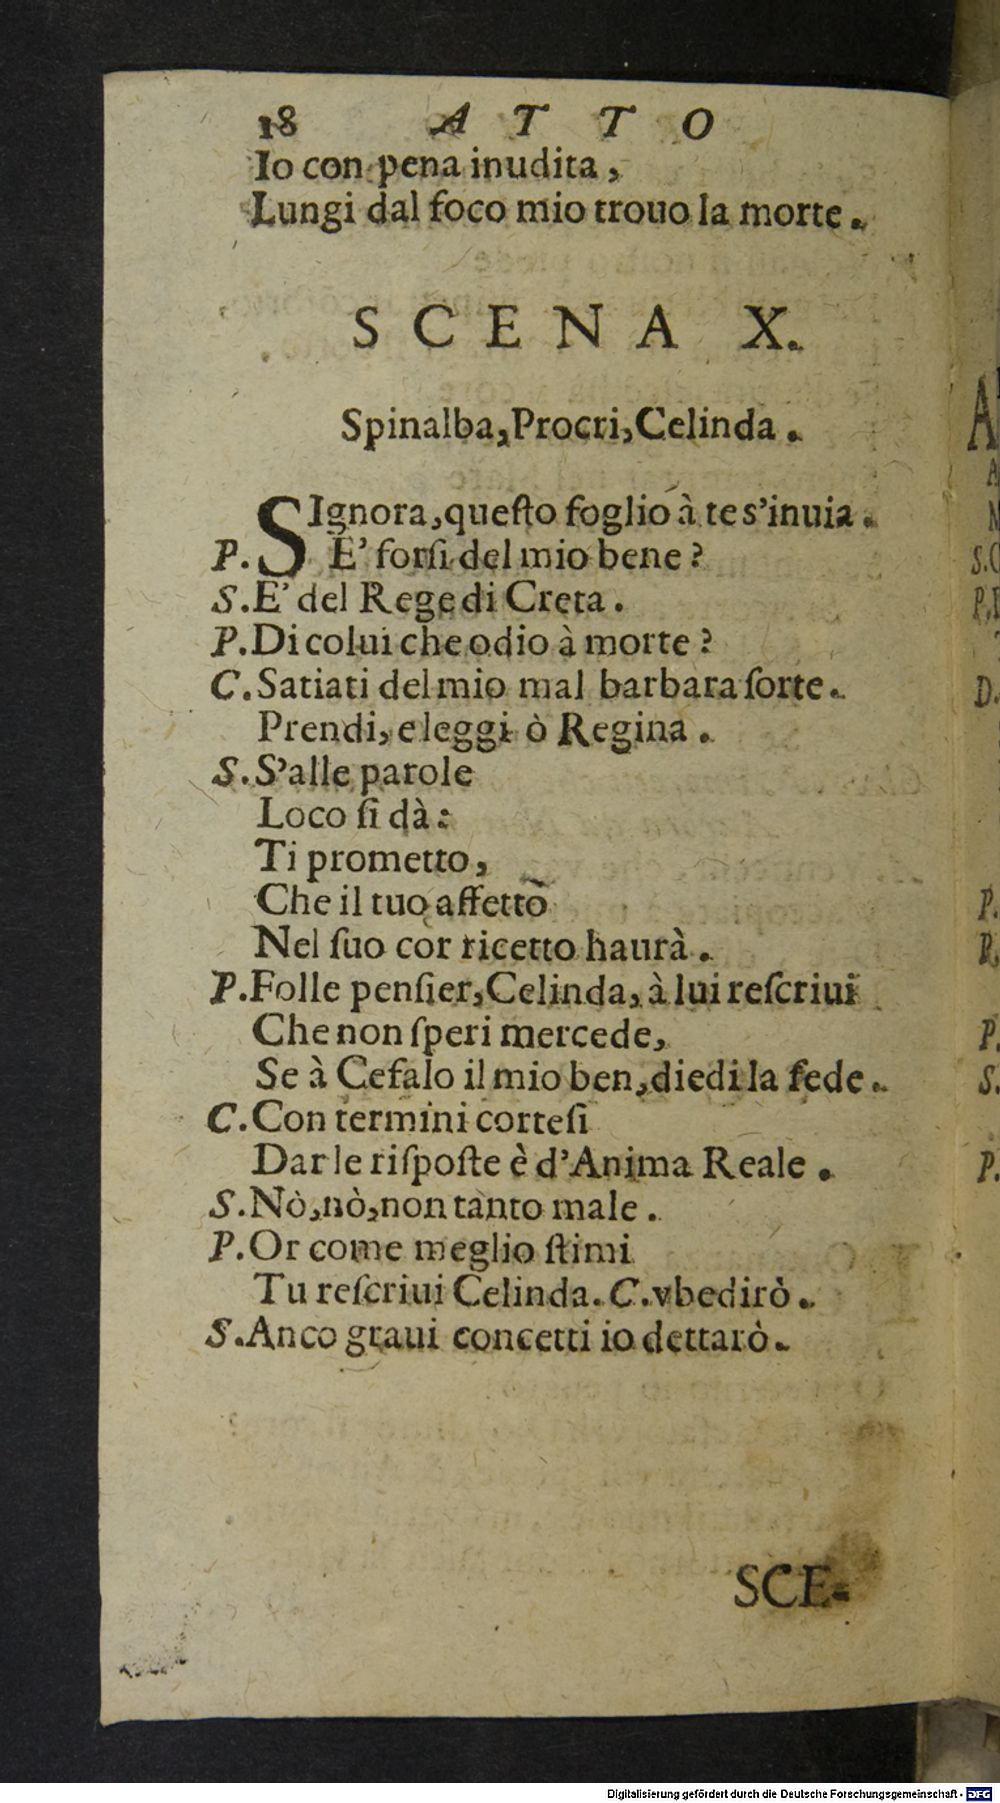 18 ATTO
Io con pena inudita,
Lungi dal foco mio trouo la morte.
SCENA X.
Spinalba, Procri, Celinda.
SIgnora, queſto foglio à te s'inuia.
P. E' forſi del mio bene?
S. E' del Rege di Creta.
P. Di colui che odio à morte?
C. Satiati del mio mal barbara ſorte.
Prendi, e leggi ò Regina.
S. S'alle parole
Loco ſi dà:
Ti prometto,
Che il tuo affetto
Nel ſuo cor ricetto haurà.
P. Folle penſier, Celinda, à lui reſcriui
Che non ſperi mercede,
Se à Cefalo il mio ben, diedi la fede.
C. Con termini corteſi
Dar le riſpoſte è d'Anima Reale.
S. Nò, nò, non tanto male.
P. Or come meglio ſtimi
Tu reſcriui Celinda. C. vbedirò.
S. Anco graui concetti io dettarò.
SCE-
Digitalisierung gefördert durch die Deutsche Forschungsgemeinschaft - DFG